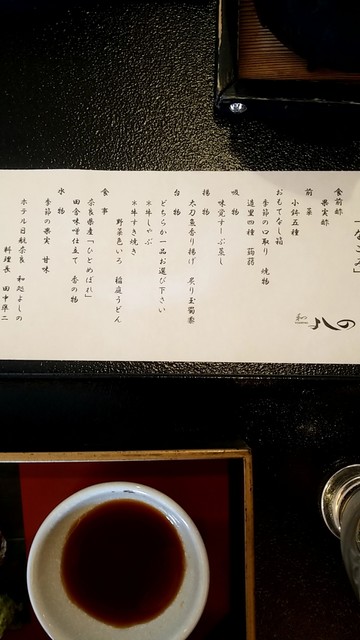 食前酢
果実酢
前菜
小鉢五種
おもてなし箱
季節の口取り 焼物
造里四種 蒟蒻
吸物
味覚すーぷ蒸し
揚物
太刀魚香り揚げ 炙り玉蜀黍
台物
どちらか一品お選び下さい
※牛しゃぶ
※牛すき焼き
野菜色いろ 稲庭うどん
食事
奈良県産「ひとめぼれ」
田舎味噌仕立て 香の物
水物
季節の果実 甘味
ホテル日航奈良 和処よしの
料理長 田中準二